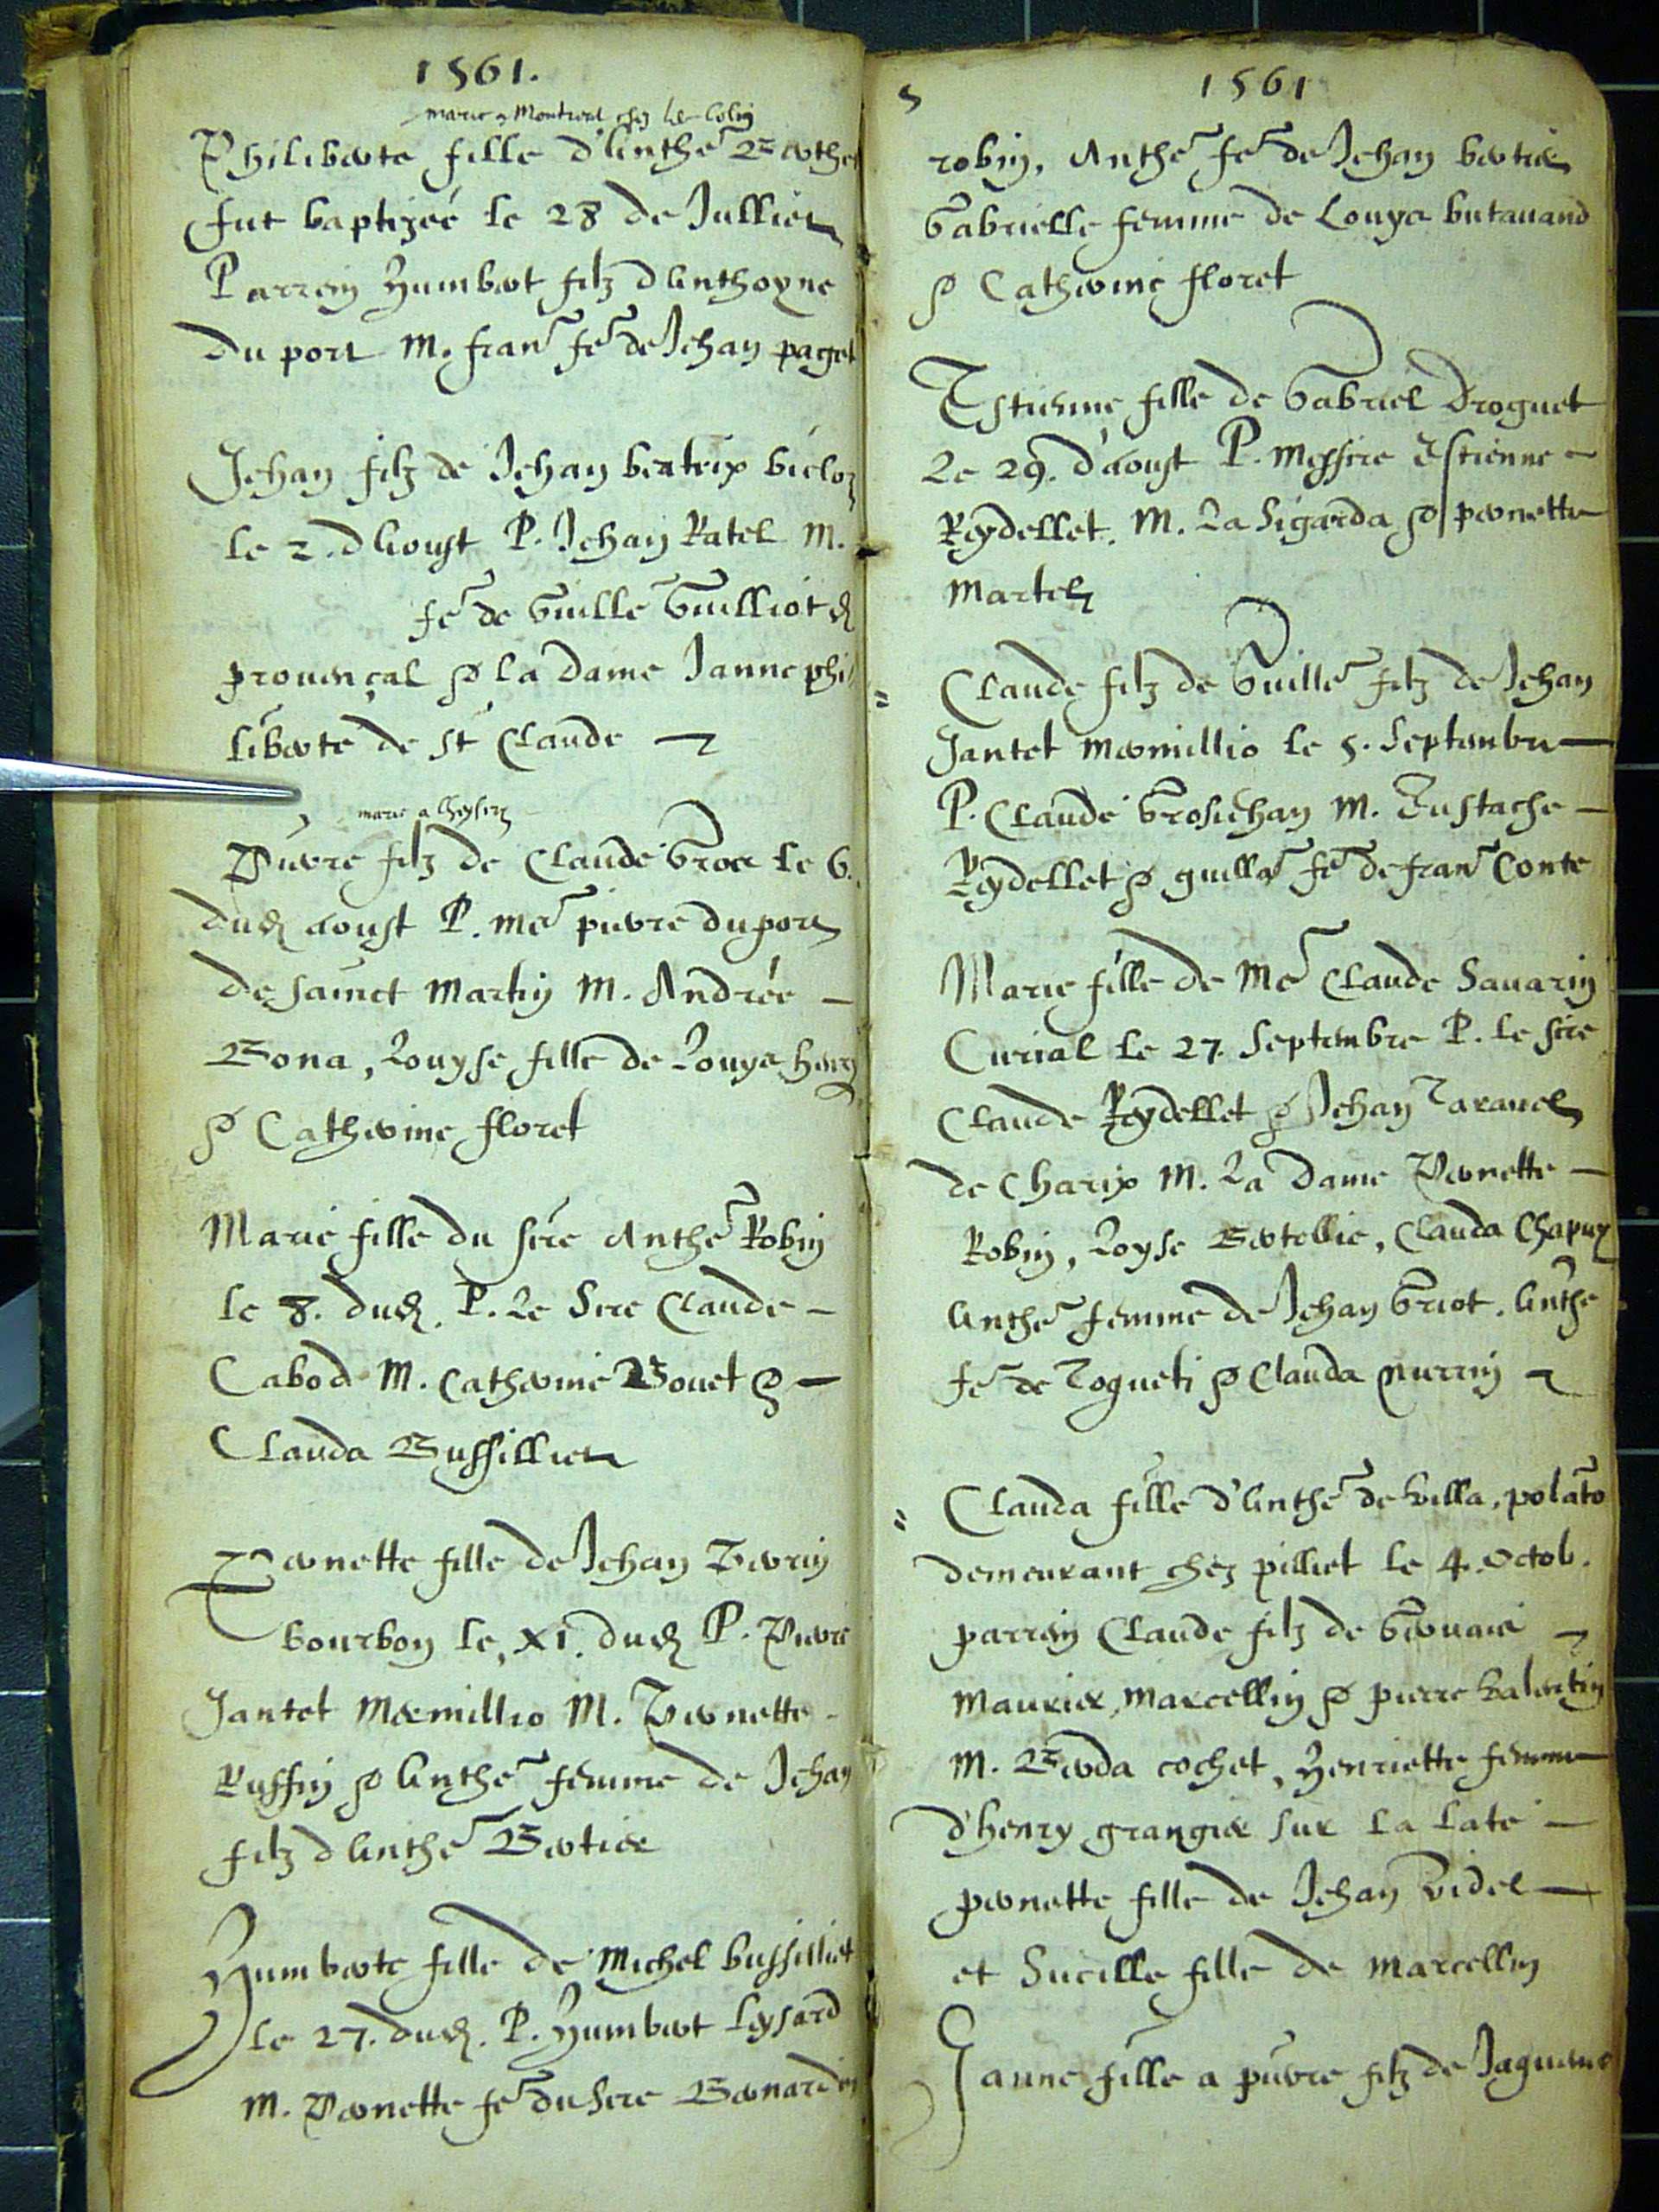 1561.
marie a Montreal chez le Colin
Philiberte fille d'Anthe Berthet
fut baptizée le 28 de Jullier
Parrein Humbert filz d Anthoyne
du port M. fran fe de Jehan paget
Jehan filz de Jehan beatrix
le 2. d Aoust P. Jehan Ratel M.
fe de Guille Guilliot d
prouençal & la Dame Janne phi
liberte de st Claude
marie a
Pierre filz de Claude Gros le 6.
dud aoust P. me pierre du port
de sainct Martin M. Andrée
Bona, Louyse fille de Louys
& Catherine floret
Marie fille du sire Anthe Robin
le 8. dud. P. Le Sire Claude
Cabod M. Catherine Bouet &
Clauda Bussillier
Pernette fille de Jehan Perrin
bourbon le, XI. dud P. Pierre
Jantet Mermillio M. Pernette
Ruffin & Anthe femme de Jehan
filz d Anthe Bertier
Humberte fille de Michel bussilliet
le 27. dud. P. Humbert Leysard
M. Pernette fe du Sire Bernardin
5
1561
robin, Anthe fe de Jehan bertier
Gabrielle femme de Louys butauand
& Catherine floret
Estienne fille de Gabriel Droguet
Le 29. d'aoust P. Messire Estienne
Reydellet. M. La Sigarda & pernette
Martel
Claude filz de Guille filz de Jehan
Jantet mermillio le 5. Septembre
P. Claude Grosiehan M. Eustache
Reydellet & guilla fe de fran Conte
Marie fille de Me Claude Sauarin
Curial le 27. Septembre P. le sire
Claude Reydellet & Jehan Tarauel
de Charix M. La Dame Pernette
Robin, Loyse Bertellie, Clauda Chapuy
Anthe femme de Jehan Griot. Anthe
fe de Togueti & Clauda
Clauda fille d'Anthe de Villa, polato
demeurant chez pilliet le 4. Octob.
parrein Claude filz de Geruais
Maurier, Marcellin & pierre Valentin
M. Berda cochet, Henriette femme
d'henry grangier sur la late
pernette fille de Jehan Videl
et Sucille fille de Marcellin
Janne fille a pierre filz de Jaqueme